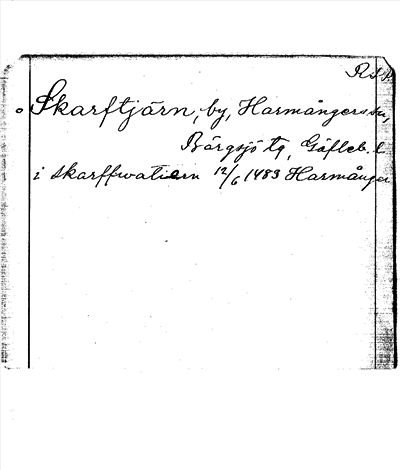 Skarftjärn, by, Harmångers sn,
Bärgsjö tg, Gäfleb. l.
i skarffwatiern 12/6 1483 Harmånger